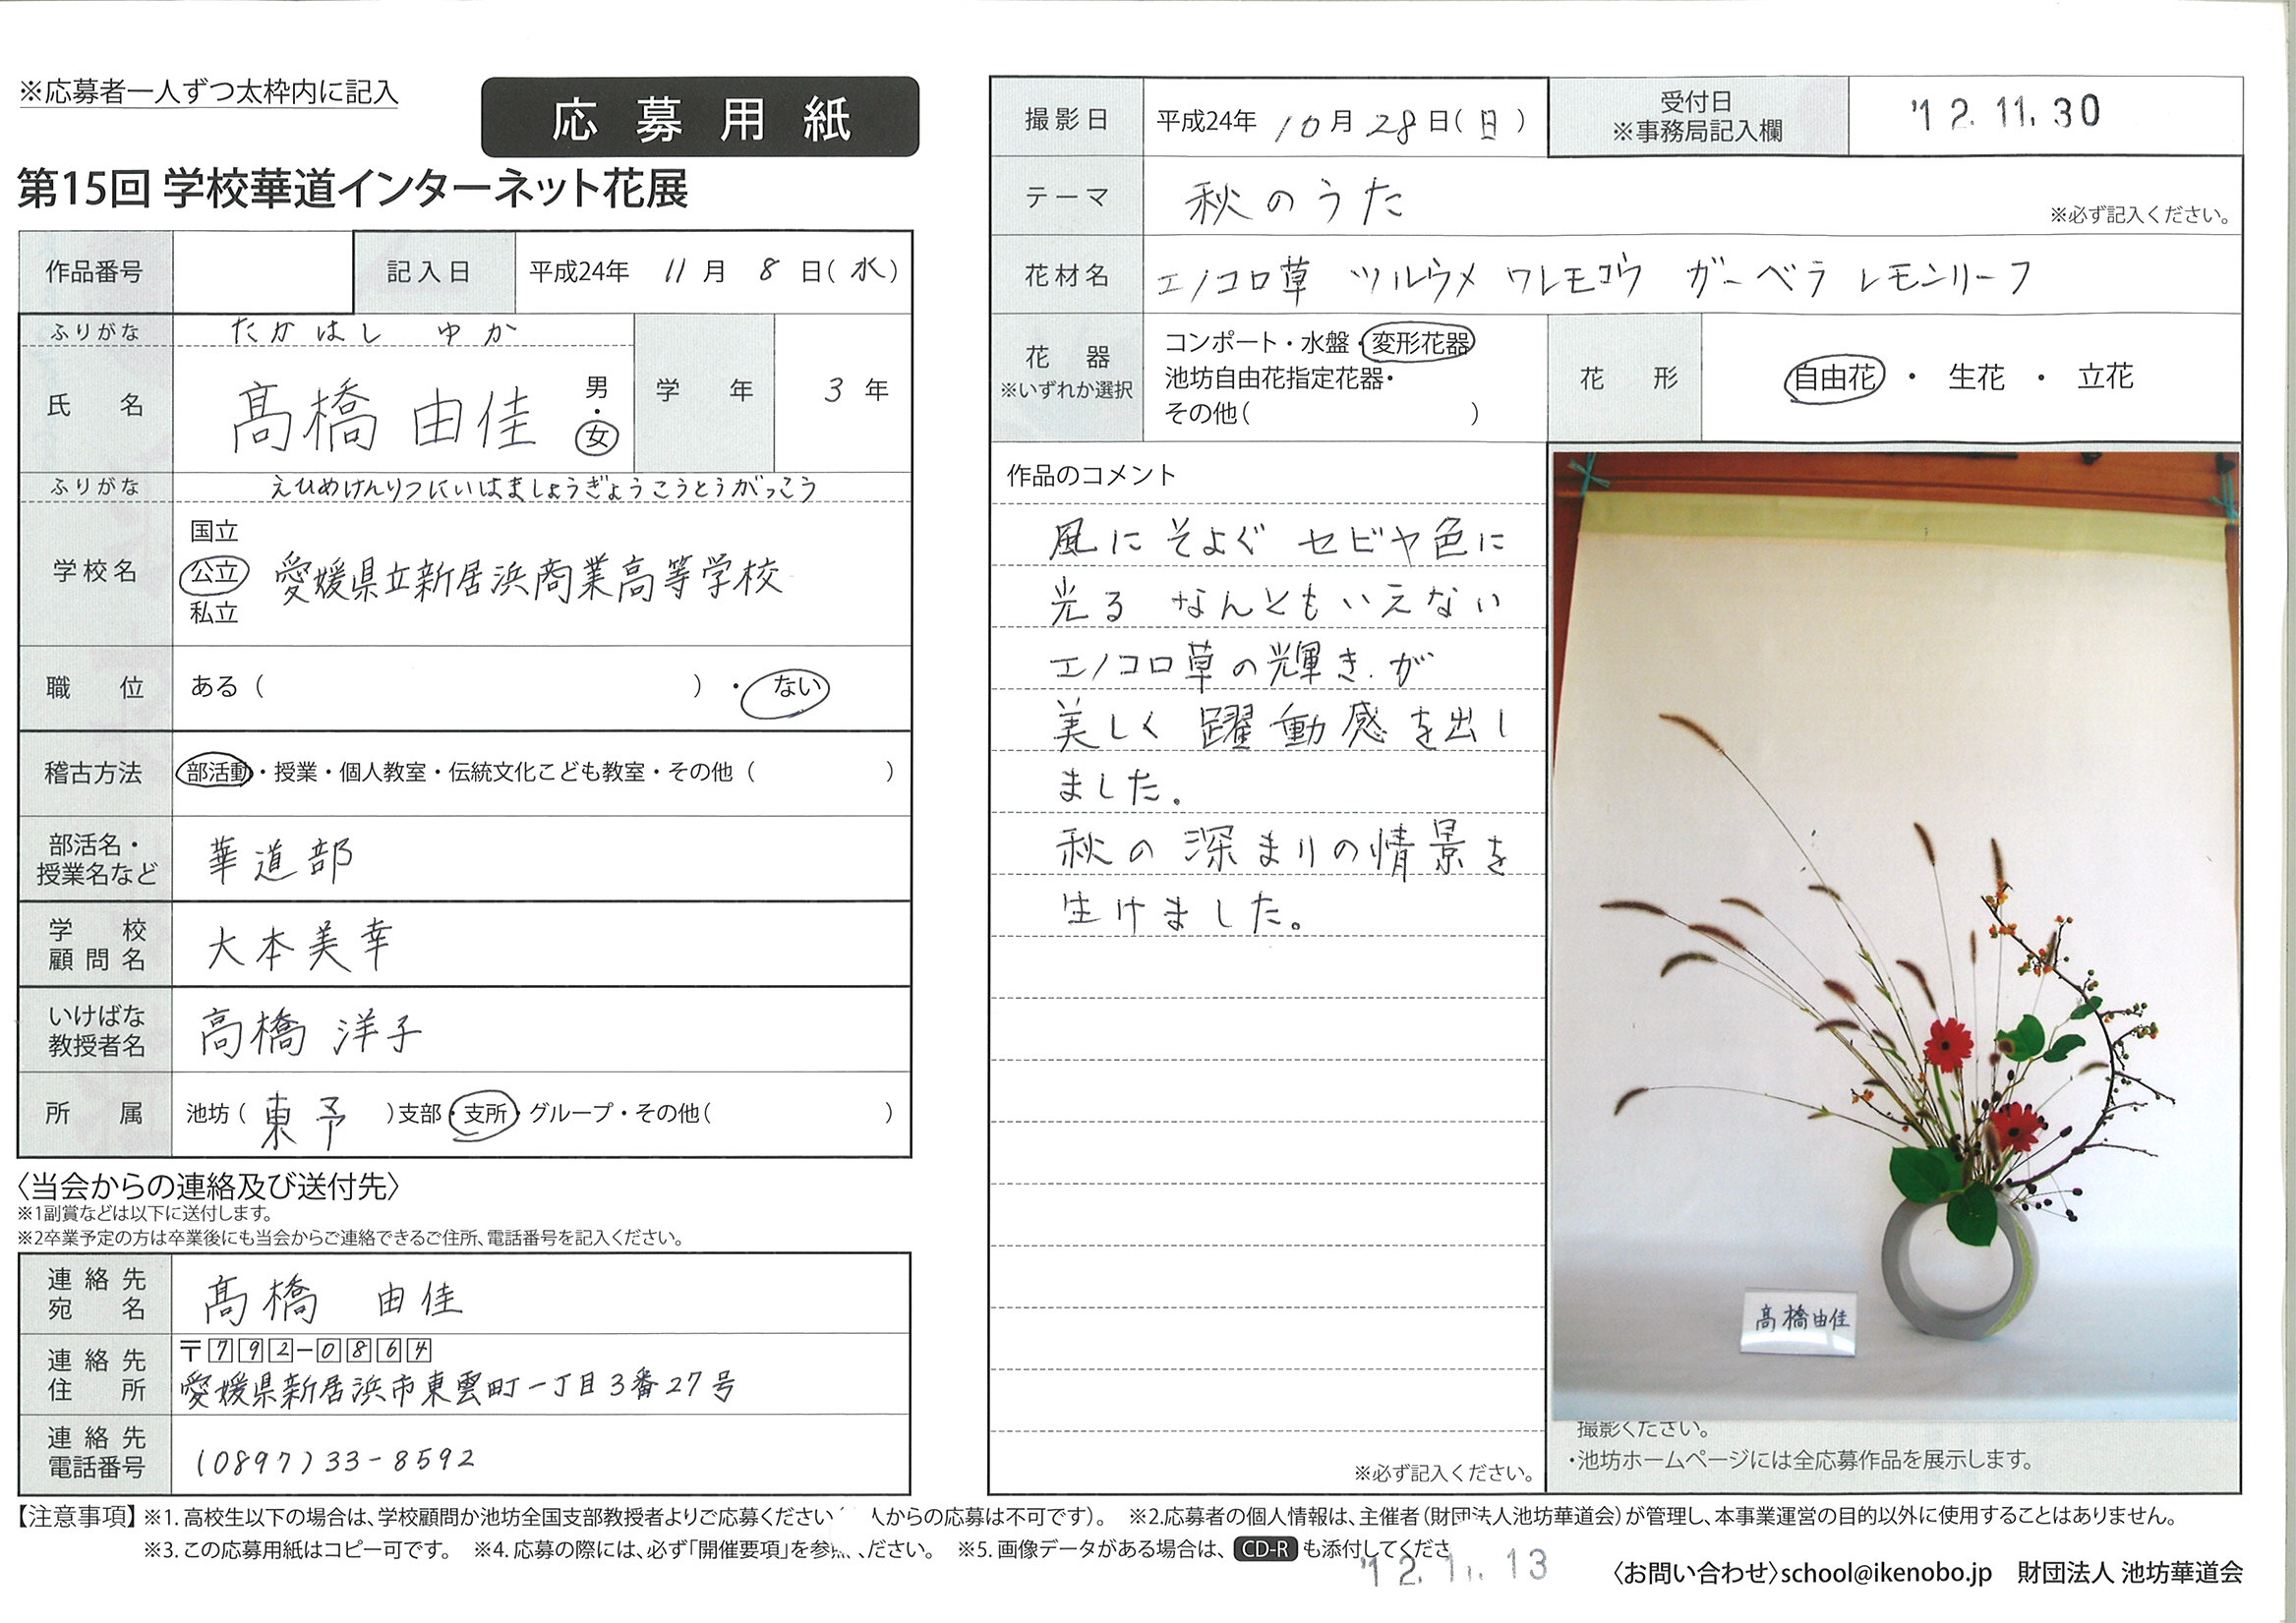 ※応募者一人ずつ太枠内に記入
応募用紙
第15回 学校華道インターネット花展
作品番号
記入日 平成24年 11月 8日(水)
ふりがな たかはし ゆか
氏名 髙橋 由佳 男・女
学年 3年
ふりがな えひめけんりつにいはましょうぎょうこうとうがっこう
学校名 国立 公立 私立 愛媛県立新居浜商業高等学校
職位 ある( )・ない
稽古方法 部活動・授業・個人教室・伝統文化こども教室・その他( )
部活名・授業名など 華道部
学校顧問名 大本美幸
いけばな教授者名 高橋 洋子
所属 池坊(東予)支部・支所・グループ・その他( )
〈当会からの連絡及び送付先〉
※1副賞などは以下に送付します。
※2卒業予定の方は卒業後にも当会からご連絡できるご住所、電話番号を記入ください。
連絡先宛名 髙橋 由佳
連絡先住所 〒792-0864
愛媛県新居浜市東雲町一丁目3番27号
連絡先電話番号 (0897)33-8592
撮影日 平成24年 10月 28日(日)
受付日 ※事務局記入欄 '12.11.30
テーマ 秋のうた ※必ず記入ください。
花材名 エノコロ草 ツルウメ ワレモコウ ガーベラ レモンリーフ
花器 ※いずれか選択
コンポート・水盤・変形花器
池坊自由花指定花器・
その他( )
花形 自由花・生花・立花
作品のコメント
風にそよぐ セビヤ色に
光る なんともいえない
エノコロ草の輝きが
美しく 躍動感を出し
ました。
秋の深まりの情景を
生けました。
※必ず記入ください。
髙橋由佳
撮影ください。
・池坊ホームページには全応募作品を展示します。
【注意事項】※1. 高校生以下の場合は、学校顧問か池坊全国支部教授者よりご応募ください 人からの応募は不可です)。 ※2.応募者の個人情報は、主催者(財団法人池坊華道会)が管理し、本事業運営の目的以外に使用することはありません。
※3. この応募用紙はコピー可です。 ※4. 応募の際には、必ず「開催要項」を参照ください。 ※5. 画像データがある場合は、 CD-R も添付してくださ
'12.11.13
〈お問い合わせ〉school@ikenobo.jp 財団法人 池坊華道会